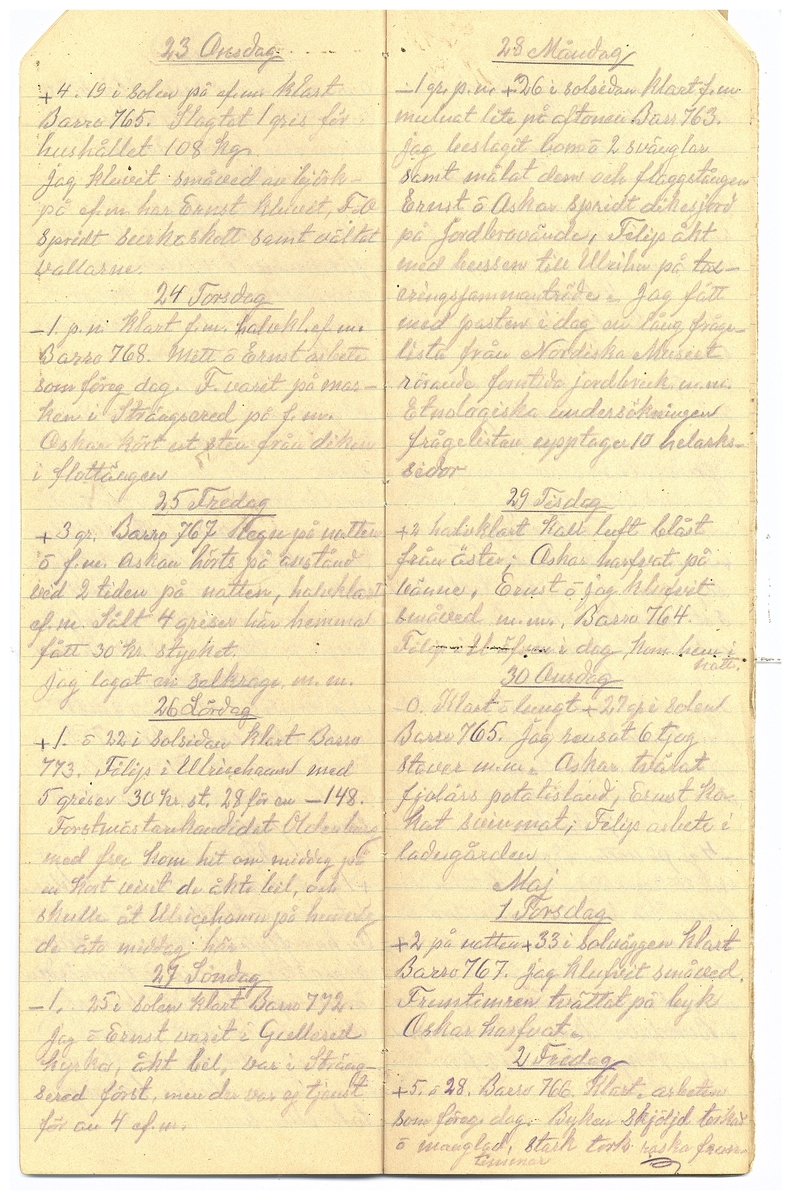 23 Onsdag
+4. 19 i solen på ef.m. klart
Barro 765. Slagtat 1 gris för
hushållet 108 kg.
Jag kluvit småved av björk
på ef.m. har Ernst kluvit, F.O
spridt samt vältat
vallarne.
24 Torsdag
-1. p.n. klart f.m. halvkl. ef.m.
Barro 768. Mitt ö Ernst arbete
som föreg dag. F. varit på mas-
ken i Strängsered på f.m.
Oskar kört ut sten från diken
i flottängen
25 Fredag
+3 gr. Barro 767 Regn på natten
ö f.m. åskan hörts på avstånd
ved 2 tiden på natten, halvklart
ef.m. Sålt 4 griser här hemma
fått 30 kr. stycket.
Jag lagat en selkrage m.m.
26 Lördag
+1. ö 22 i solsidan klart Barro
773. Filip i Ulricehamn med
5 griser 30 kr st, 28 för en -148.
Forstmästarkandidat Oldenburg
med fru kom hit om middag på
en kort visit de åkte bil, och
skulle åt Ulricehamn på hemväg
de åto middag här
27 Söndag
-1. 25 i solen klart Barro 772.
Jag ö Ernst varit i Gullered
kyrka, åkt bil, var i Sträng-
sered först, men der var ej tjenst
för en 4 ef.m.
28 Måndag
-1 gr. p.n. +26 i solsidan klart f.m.
mulnat lite på aftonen Barr 763.
Jag beslagit bom ö 2 svänglar
samt målat dem och flaggstången
Ernst ö Oskar spridt dikesjord
på Filip åkt
med bussen till Ulrihn på tax-
eringssammanträde. Jag fått
med posten i dag en lång fråge-
lista från Nordiska Museet
rörande forntida jordbruk m.m.
Etnologiska undersökningen
frågelistan upptager 10 helarks-
sidor
29 Tisdag
+2 halvklart kall luft blåst
från öster; Oskar harfvat på
vänne, Ernst ö jag kluvit
småved m.m. Barro 764.
Filip i dag kom hem i
natt.
30 Onsdag
-0. Klart ö lungt +27 gr i solen
Barro 765. Jag rensat 6 tjog
stover m.m. Oskar tvärat
fjolårs potatisland, Ernst ko-
kat svinmat; Filip arbete i
ladugården
Maj
1 Torsdag
+2 på natten +33 i solväggen klart
Barro 767. Jag klufvit småved.
Fruntimren tvättat på byk
Oskar harfvat.
2 Fredag
+5. ö 28. Barro 766. Klart. arbeten
som föreg. dag. Byken skjöljd torkad
ö manglad, stark tork raska frun-
timmer